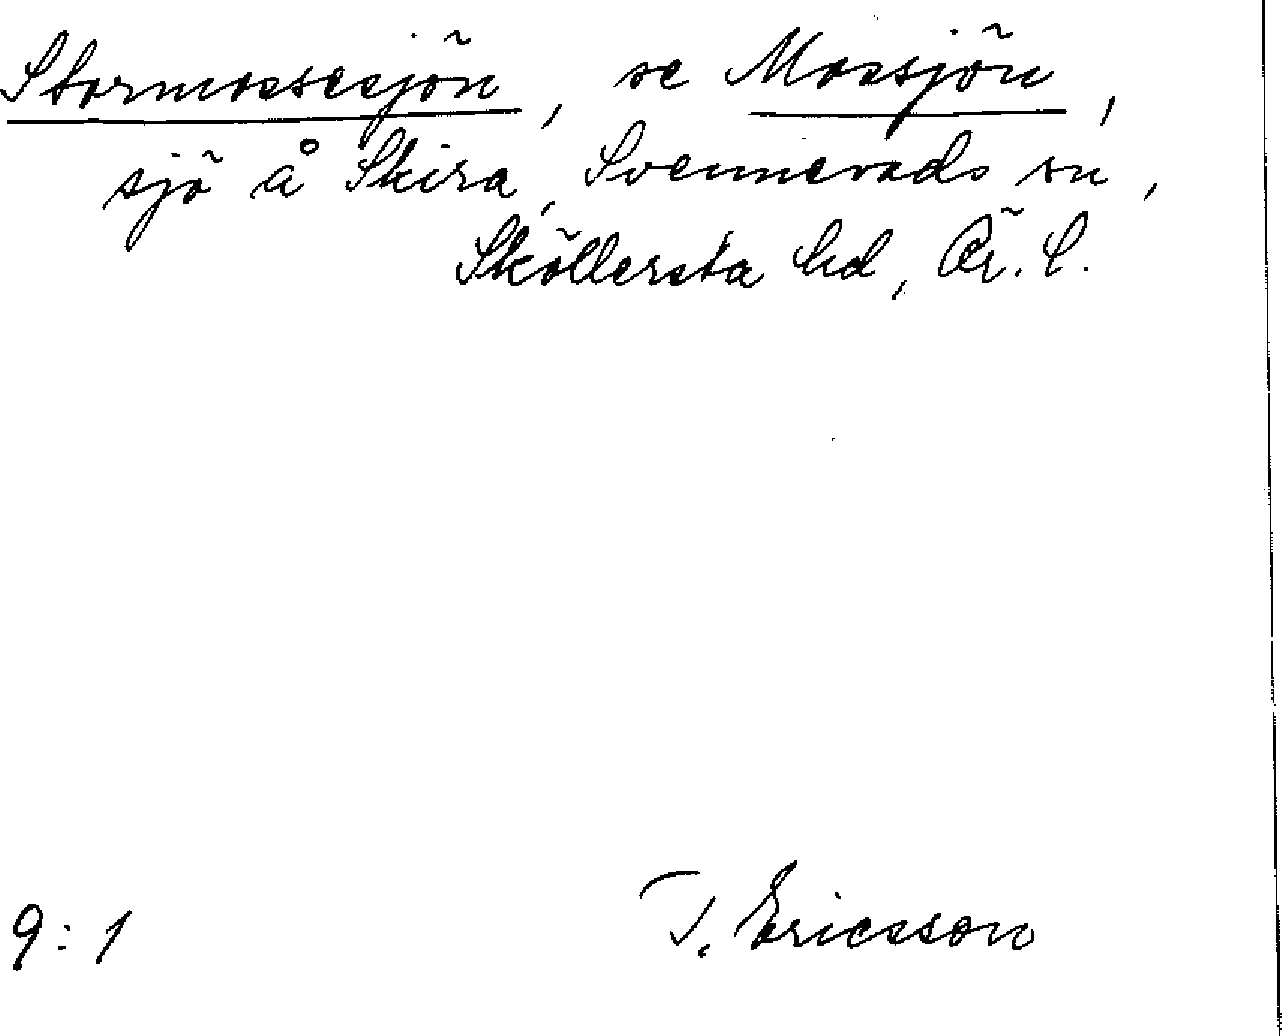 Stormossesjön, se Mossjön,
sjö å Skira, Svennevads sn,
Sköllersta hd, Ör. l.
9:1 T. Ericsson